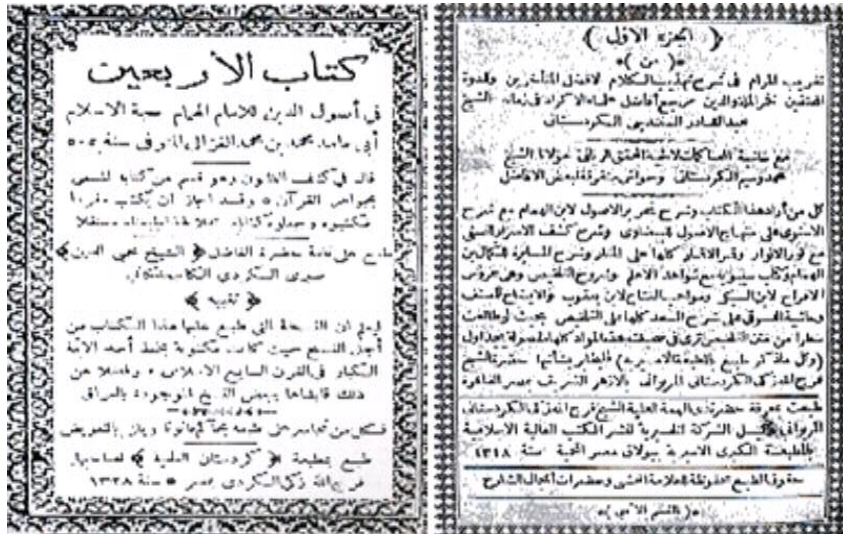 كتاب الأربعين
في أصول الدين للامام الهمام حجة الاسلام
أبي حامد محمد بن محمد الغزالي المتوفى سنة ٥٠٥
قال في كشف الظنون وهو قسم من كتابه المسمى
بجواهر القرآن ٥ وقد أجاز ان يكتب مفردا
فكتبوه
طبع على نفقة حضرة الفاضل ﴿ الشيخ محي الدين ﴾
صبري الكردي
﴿ تنبيه ﴾
ان النسخة التي طبع عليها هذا الكتاب من
أجل النسخ حيث كانت مكتوبة بخط أحد الائمة
الكبار في القرن السابع الاسلامي وفضلا عن
ذلك قابلناها ببعض النسخ الموجودة بالعراق
فكل من تجاسر على طبعه
طبع بمطبعة ﴿ كردستان العلمية ﴾ لصاحبها
فرج الله زكي الكردي بمصر سنة ١٣٢٨
﴿ الجزء الاول ﴾
﴿ من ﴾
تقريب المرام في شرح تهذيب الكلام لافضل المتأخرين وقدوة
المحققين من جمع أفاضل علماء الاكراد في زمانه الشيخ
عبد القادر السنندجي الكردستاني
مع حاشية المحاكمات للمحقق مولانا الشيخ
محمد وسيم الكردستاني وحواش متفرقة لبعض الافاضل
كل من أراد هذا الكتاب وشرح تحرير الاصول لابن الهمام مع شرح
الاسنوي على منهاج الاصول للبيضاوي وشرح كشف الاسرار للنسفي
مع نور الانوار وقمر الاقمار كلها على المنار وشرح المسايرة للكمال بن
الهمام وكتاب سيبويه مع شواهد الاعلم وشروح التلخيص وهي عروس
الافراح لابن السبكي ومواهب الفتاح لابن يعقوب والايضاح للمصنف
وحاشية الدسوقي على شرح السعد كلها على التلخيص بحيث لو طالعت
سطرا من متن التلخيص ترى في صحيفته هذه المواد كلها مفصولة بجداول
فليطلب حضرة الشيخ
فرج الله زكي الكردستاني المريواني بالازهر الشريف بمصر القاهرة
طبعت بمعرفة حضرة ذي الهمة العلية الشيخ فرج الله زكي الكردستاني
المريواني وكيل الشركة الخيرية لنشر الكتب العالية الاسلامية
بالمطبعة الكبرى الاميرية ببولاق مصر المحمية سنة ١٣١٨
حقوق الطبع محفوظة للعلامة المحشي وحضرات أنجال الشارح